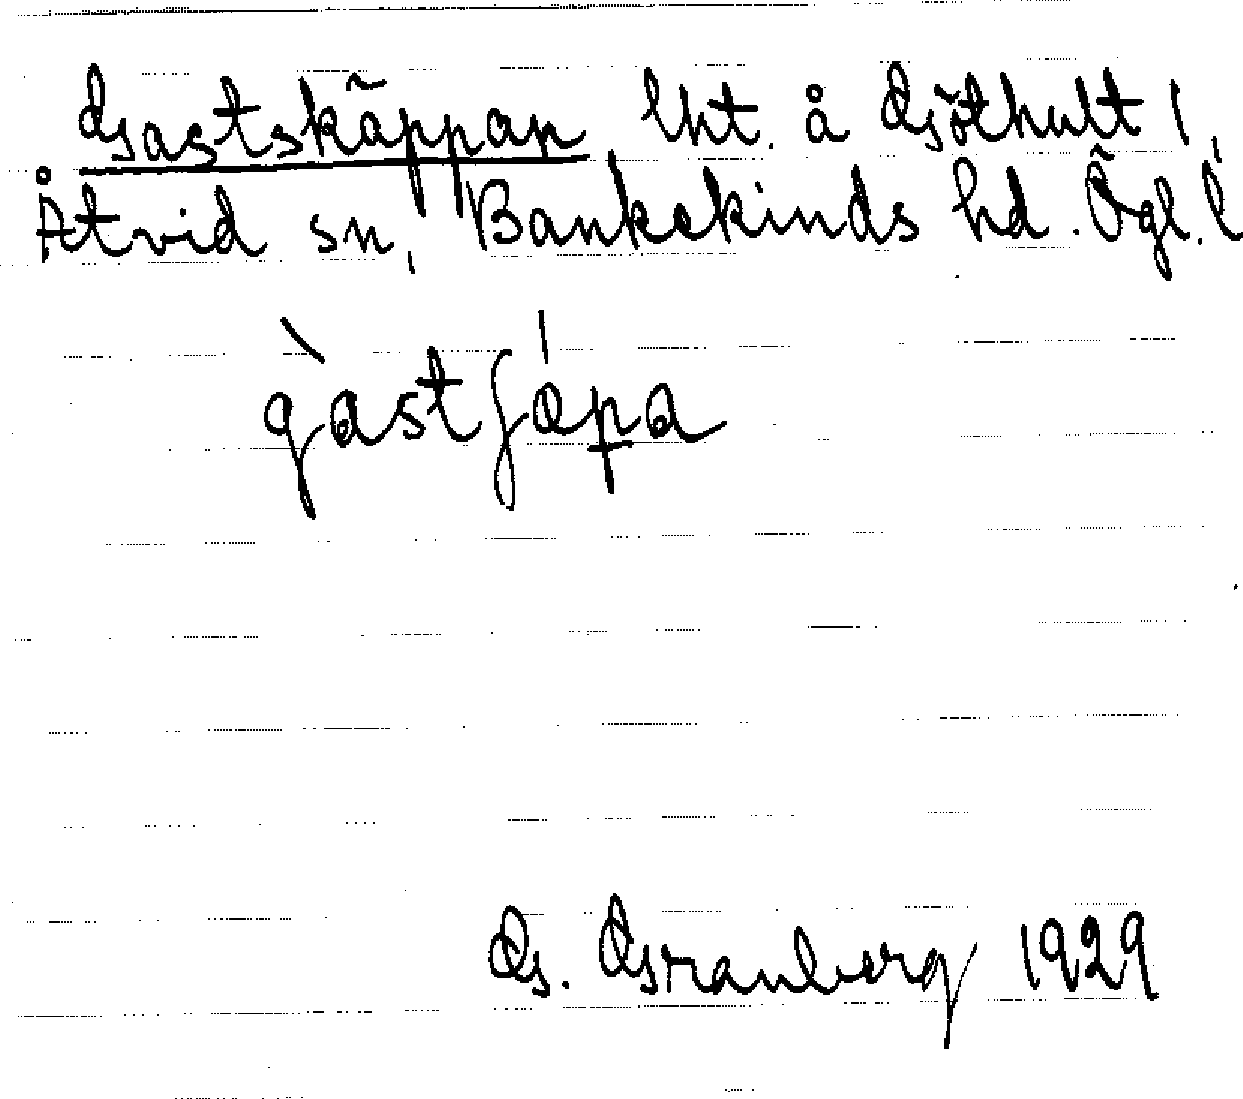 Gastskäppan lht. å Gjöthult,
Åtvid sn, Bankekinds hd. Ögl.l
G. Granberg 1929